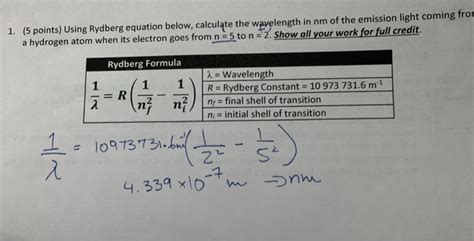 1. (5 points) Using Rydberg equation below, calculate the wavelength in nm of the emission light coming from
a hydrogen atom when its electron goes from n = 5 to n = 2. Show all your work for full credit.
Rydberg Formula
1/λ = R(1/n_f^2 − 1/n_i^2)
λ = Wavelength
R = Rydberg Constant = 10 973 731.6 m⁻¹
n_f = final shell of transition
n_i = initial shell of transition
1/λ = 10973731.6m⁻¹(1/2² − 1/5²)
4.339 ×10⁻⁷ m → nm